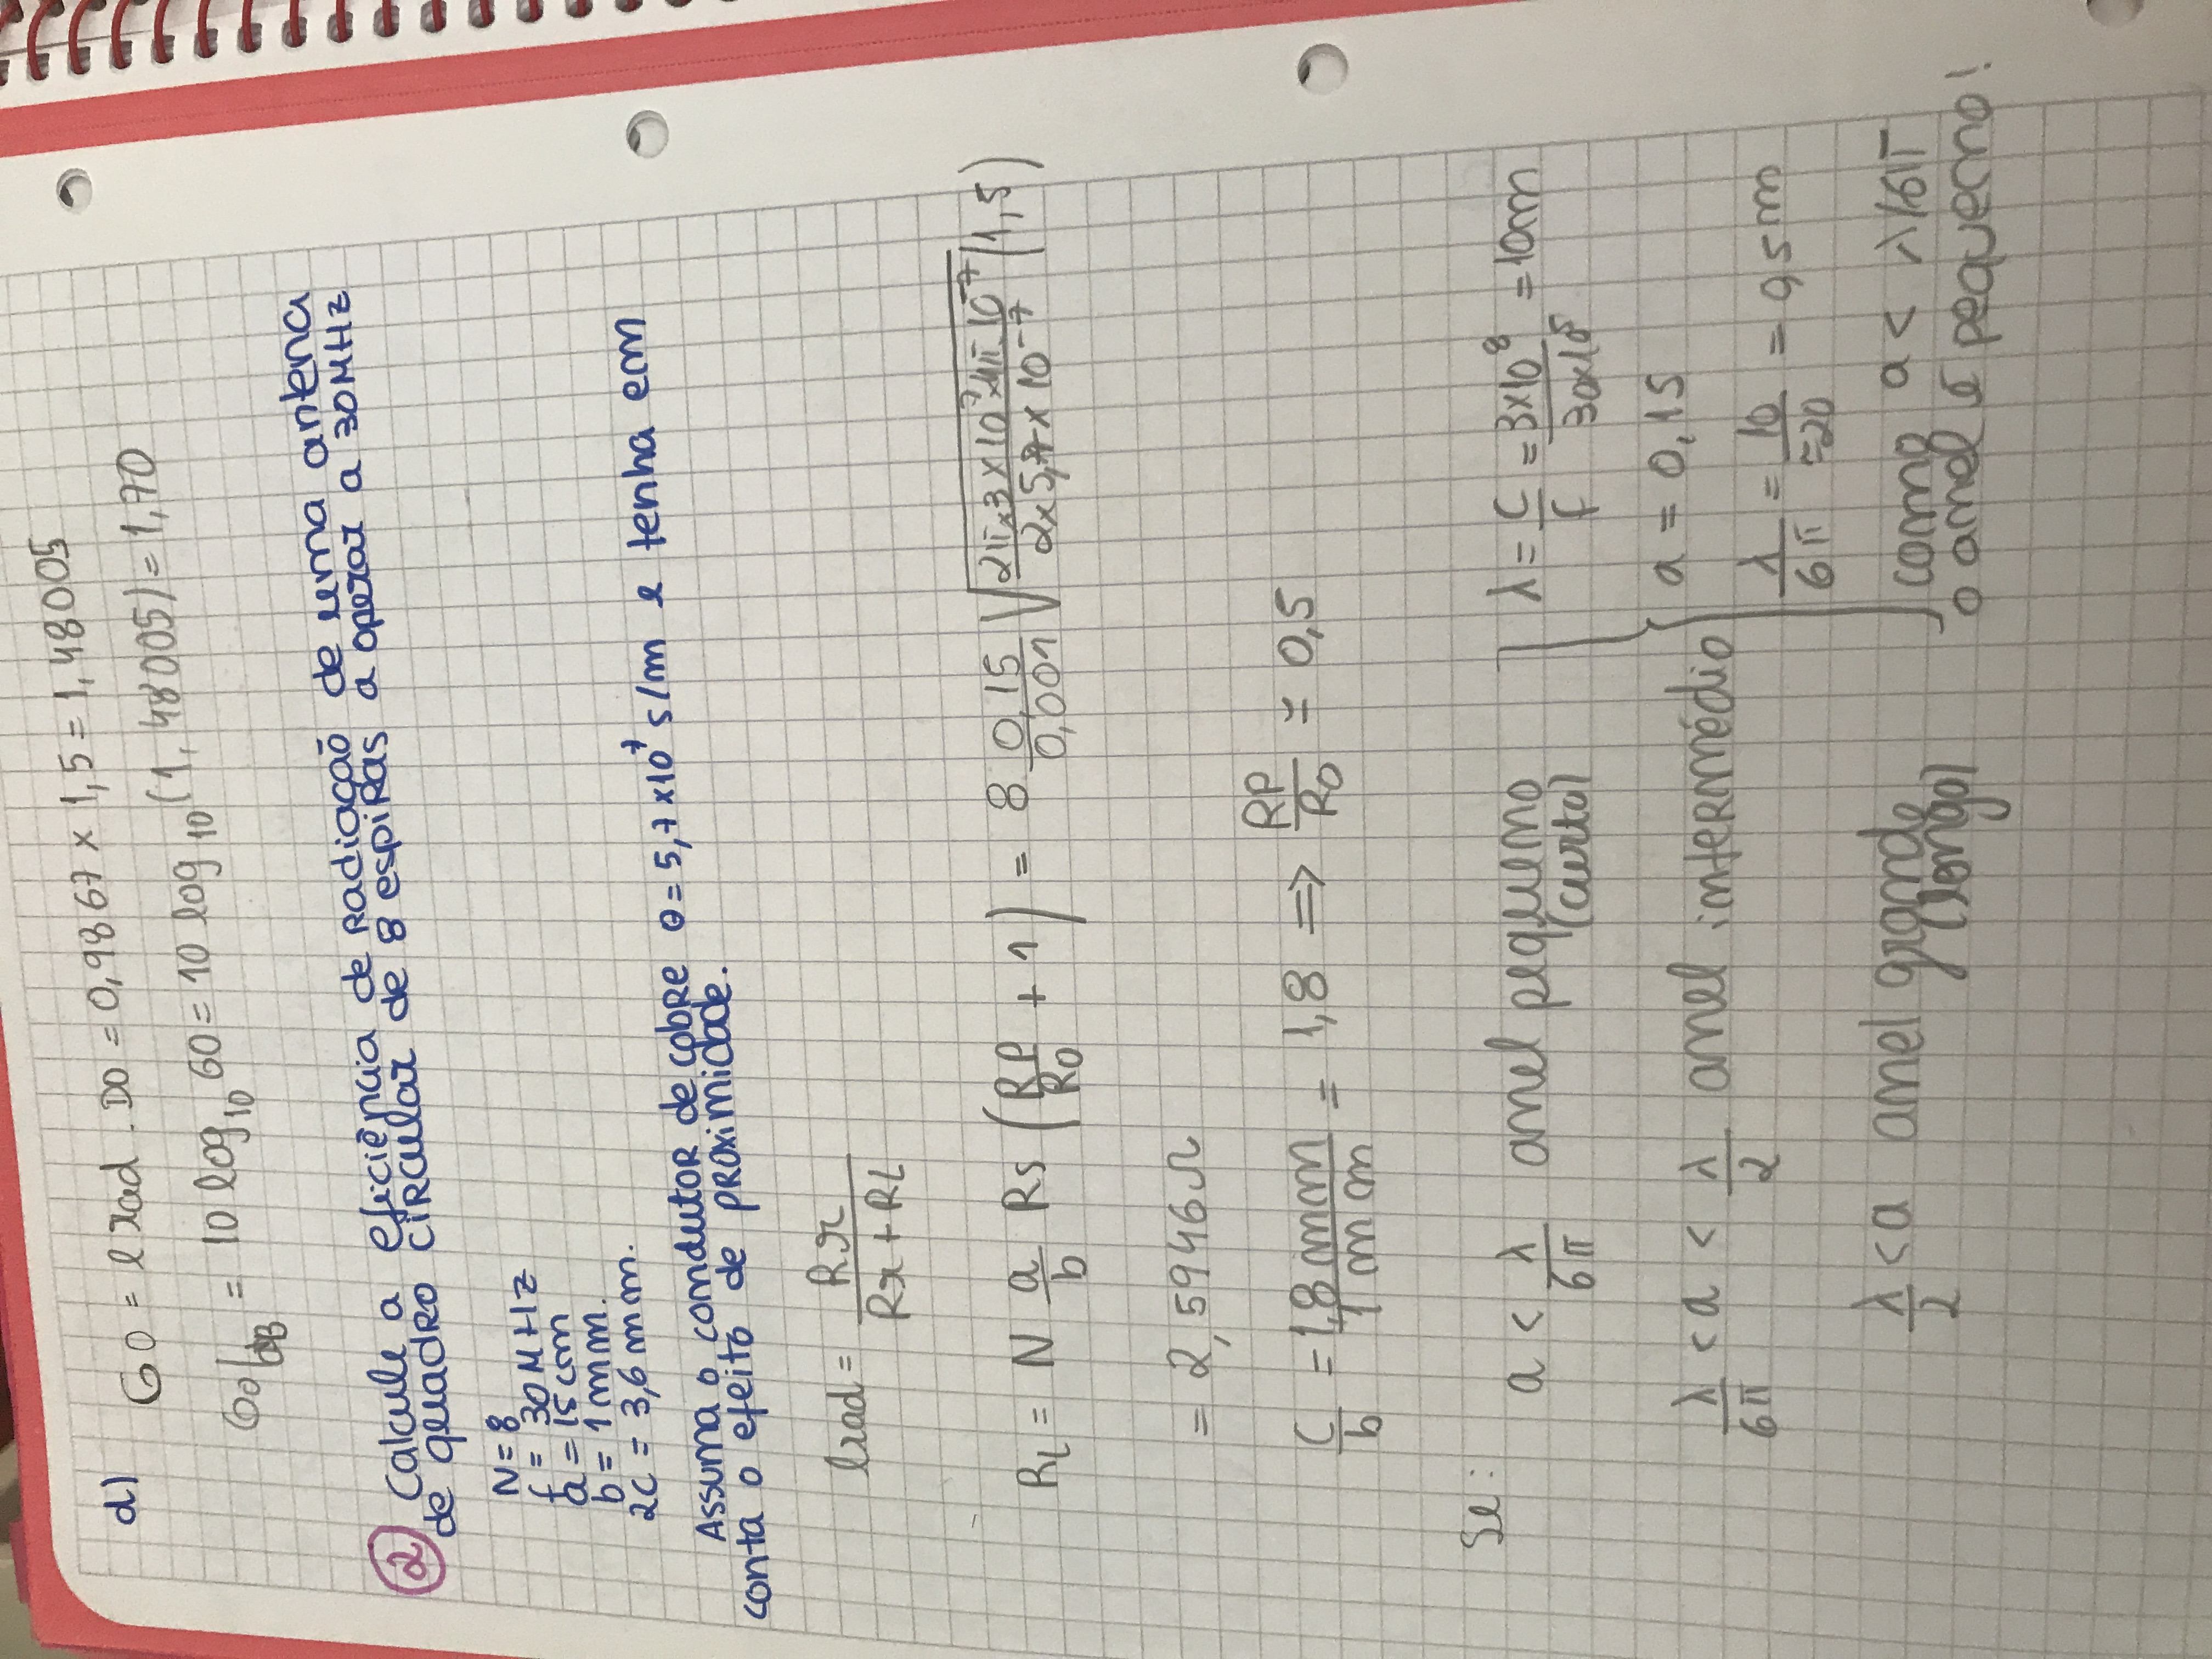 d) G0 = erad . D0 = 0,9867 x 1,5 = 1,48005
G0|dB = 10 log10 G0 = 10 log10 (1,48005) = 1,70
② Calcule a eficiência de Radiação de uma antena
de quadro circular de 8 espiras a operar a 30MHz
N = 8
f = 30MHz
a = 15cm
b = 1mm.
2c = 3,6mm.
Assuma o condutor de cobre σ = 5,7x10^7 s/m e tenha em
conta o efeito de proximidade.
erad = Rr / (Rr + RL)
RL = N a/b Rs (RP/R0 + 1) = 8 0,15/0,001 √(2π x 3 x 10^7 x 4π.10^-7 / 2 x 5,7 x 10^-7) (1,5)
= 2,5946Ω
c/b = 1,8mm/1mm = 1,8 => RP/R0 ≅ 0,5
Se:
a < λ/6π anel pequeno (curto)
λ/6π < a < λ/2 anel intermédio
λ/2 < a anel grande (longo)
λ = c/f = 3x10^8 / 30x10^5 = 10m
a = 0,15
λ/6π = 10/≈20 = 0,5m
como a < λ/6π
o anel é pequeno!